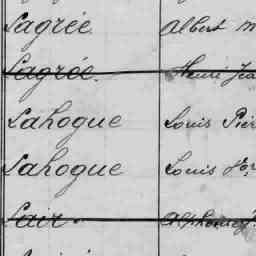 Lagrée Albert
Lagrée Henri
Lahogue Louis
Lahogue Louis
Lair